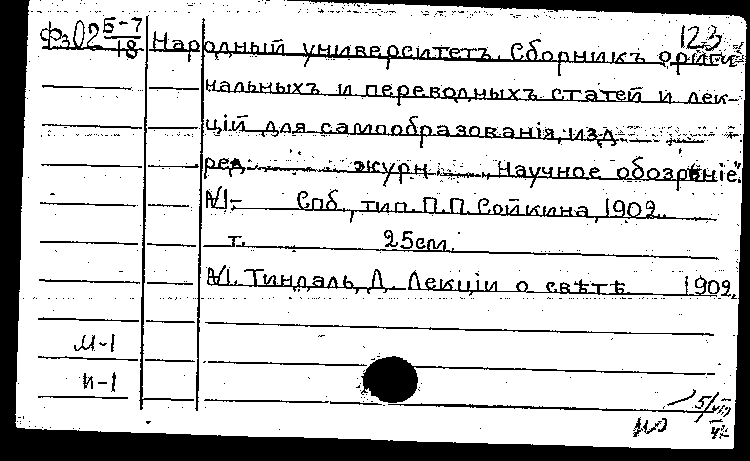 123
Фз02 5-7/18 Народный университетъ. Сборникъ ориги-
нальныхъ и переводныхъ статей и лек-
цій для самообразованія, изд.
ред. журн. „Научное обозрѣніе".
№1- Спб., тип. П.П. Сойкина, 1902.
т. 25см.
№1. Тиндаль, Д. Лекціи о свѣтѣ 1902.
М-1
И-1
5/VII